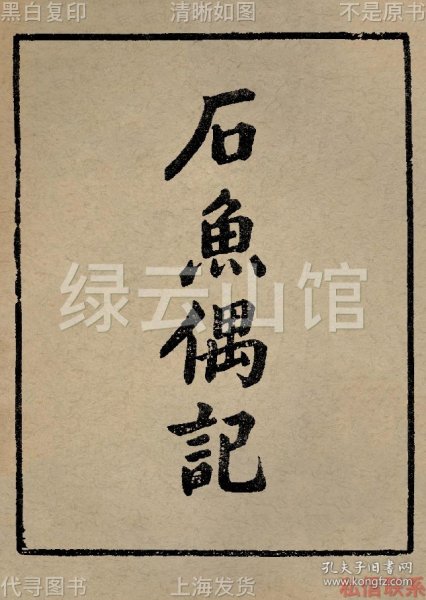 黑白复印 清晰如图 不是原书
石魚偶記
绿云山馆
代寻图书 上海发货 私信联系
孔夫子旧书网
www.kongfz.com